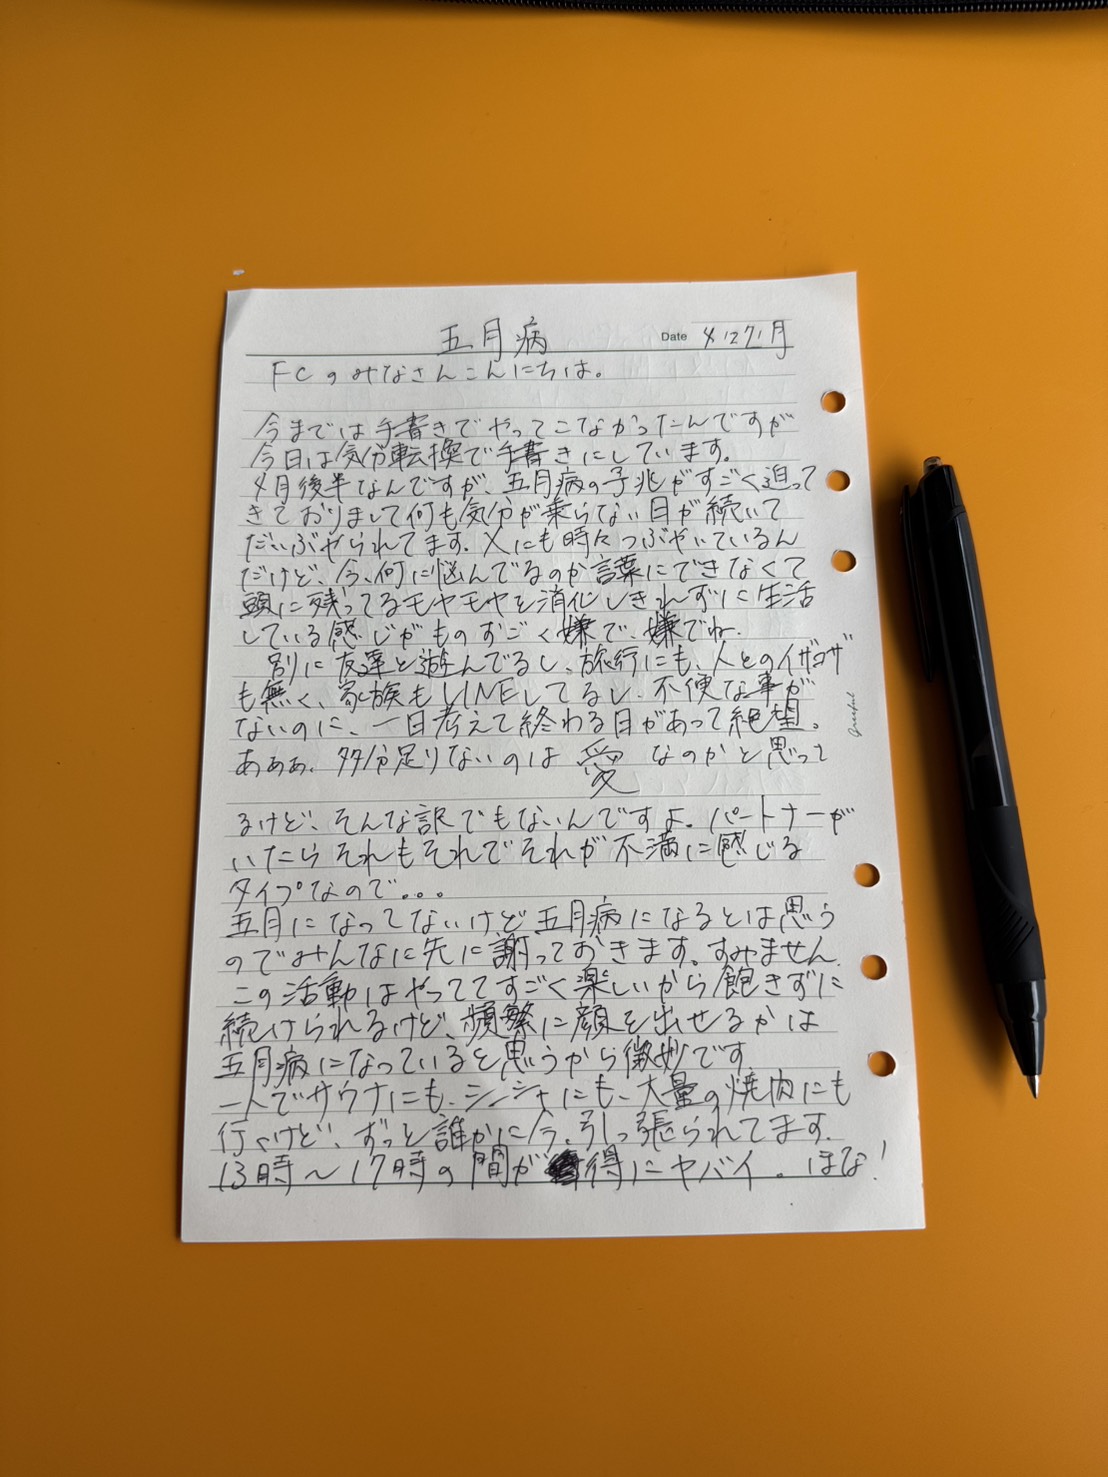 五月病
Date 4/27/月
FCのみなさんこんにちは。
今までは手書きでやってこなかったんですが
今日は気分転換で手書きにしています。
4月後半なんですが、五月病の予兆がすごく迫って
きておりまして何も気分が乗らない日が続いて
だいぶやられてます。Xにも時々つぶやいているん
だけど、今、何に悩んでるのか言葉にできなくて
頭に残ってるモヤモヤを消化しきれずに生活
している感じがものすごく嫌で、嫌でね.
別に友達と遊んでるし、旅行にも、人とのイザコザ
も無く、家族もLINEしてるし、不便な事が
ないのに、一日考えて終わる日があって絶望。
あぁぁ、多分足りないのは 愛 なのかと思って
るけど、そんな訳でもないんですよ。パートナーが
いたらそれもそれでそれが不満に感じる
タイプなので...
五月になってないけど五月病になるとは思う
のでみんなに先に謝っておきます。すみません.
この活動はやっててすごく楽しいから飽きずに
続けられるけど、頻繁に顔を出せるかは
五月病になっていると思うから微妙です
一人でサウナにも、シーシャにも、大量の焼肉にも
行くけど、ずっと誰かに今、引っ張られてます.
13時〜17時の間が得にヤバイ。ほな!